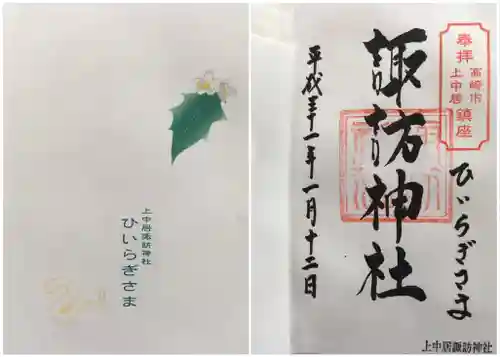 上中居諏訪神社
ひいらぎさま
奉拝
高崎市
上中居
鎮座
諏訪神社
ひいらぎさま
平成三十一年一月十二日
上中居諏訪神社